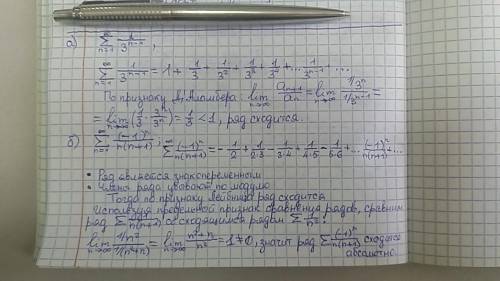 а) ∑_{n=1}^∞ 1/3^{n-1},
∑_{n=1}^∞ 1/3^{n-1} = 1 + 1/3 + 1/3² + 1/3³ + 1/3⁴ + ... 1/3^{n-1} + ...
По признаку Даламбера lim_{n→∞} a_{n+1}/a_n = lim_{n→∞} (1/3^n)/(1/3^{n-1}) =
= lim_{n→∞} (1/3 · 3^n/3^n) = 1/3 < 1, ряд сходится.
б) ∑_{n=1}^∞ (-1)^n/n(n+1); ∑^∞ (-1)^n/n(n+1) = -1/2 + 1/2·3 - 1/3·4 + 1/4·5 - 1/5·6 + ... (-1)^n/n(n+1) + ...
• Ряд является знакопеременном
• Члены ряда убывают по модулю
Тогда по признаку Лейбница ряд сходится
Используя предельной признак сравнения рядов, сравним
ряд ∑ 1/n(n+1) со сходящимся рядом ∑ 1/n²:
lim_{n→∞} (1/n²)/(1/(n²+n)) = lim_{n→∞} (n²+n)/n² = 1 ≠ 0, значит ряд ∑ (-1)^n/n(n+1) сходится
абсолютно.